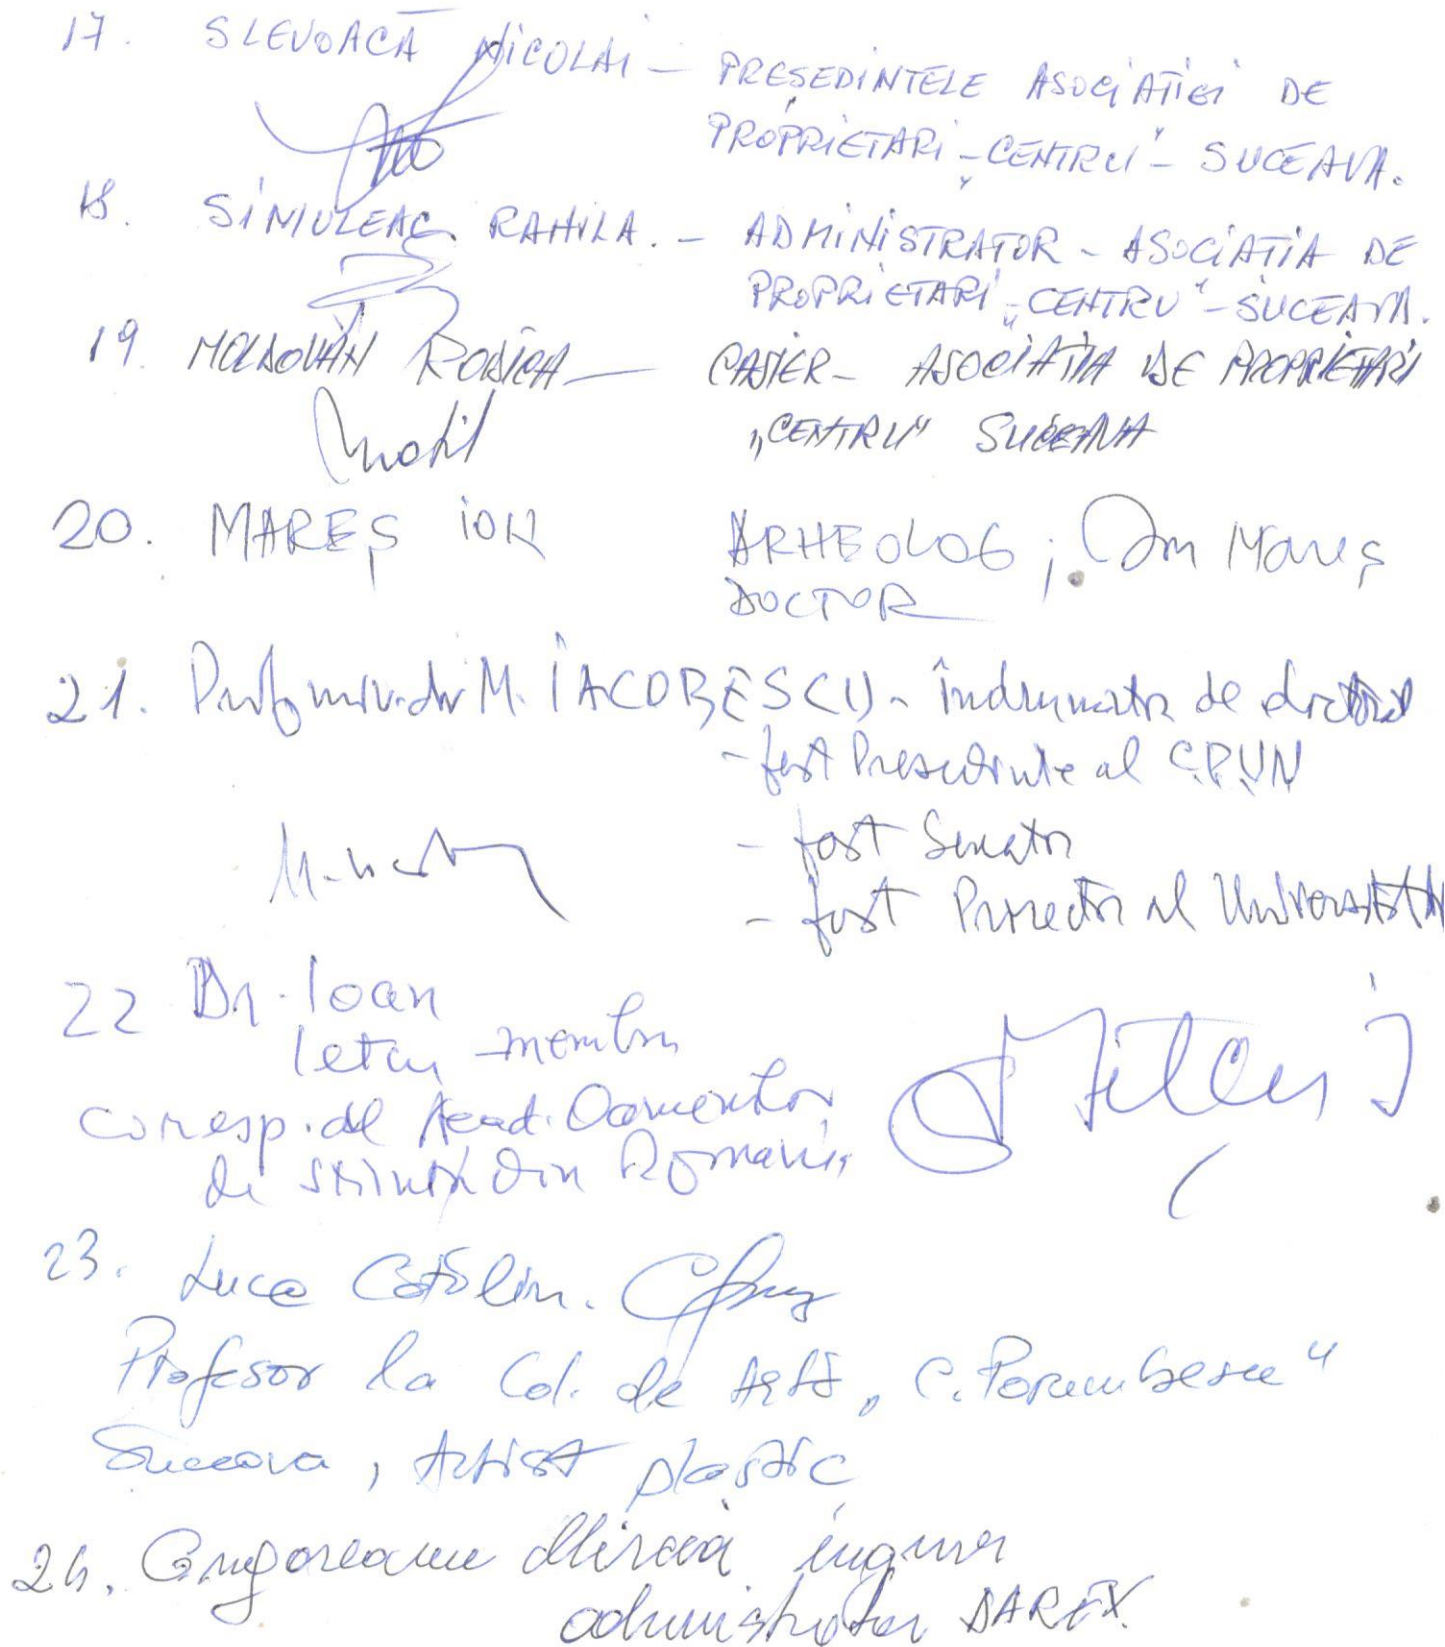 17. SLEVOACĂ NICOLAI – PREȘEDINTELE ASOCIAȚIEI DE
PROPRIETARI – „CENTRU” – SUCEAVA.
18. SINIULEAC RAHILA. – ADMINISTRATOR – ASOCIAȚIA DE
PROPRIETARI „CENTRU” – SUCEAVA.
19. MOLDOVAN RODICA — CASIER – ASOCIAȚIA DE PROPRIETARI
„CENTRU” SUCEAVA
20. MAREȘ ION ARHEOLOG; Ion Mareș
DOCTOR
21. Prof. univ. dr M. IACOBESCU – îndrumător de doctorat
- fost Președinte al CPUN
- fost Senator
- fost Prorector al Universității
22 Dr. Ioan
Iețcu membru
coresp. al Acad. Oamenilor
de Știință din România
23. Luca Cătălin.
Profesor la Col. de Artă „C. Porumbescu”
Suceava, Artist plastic
24. Grigoreanu Mircea inginer
administrator DAREX